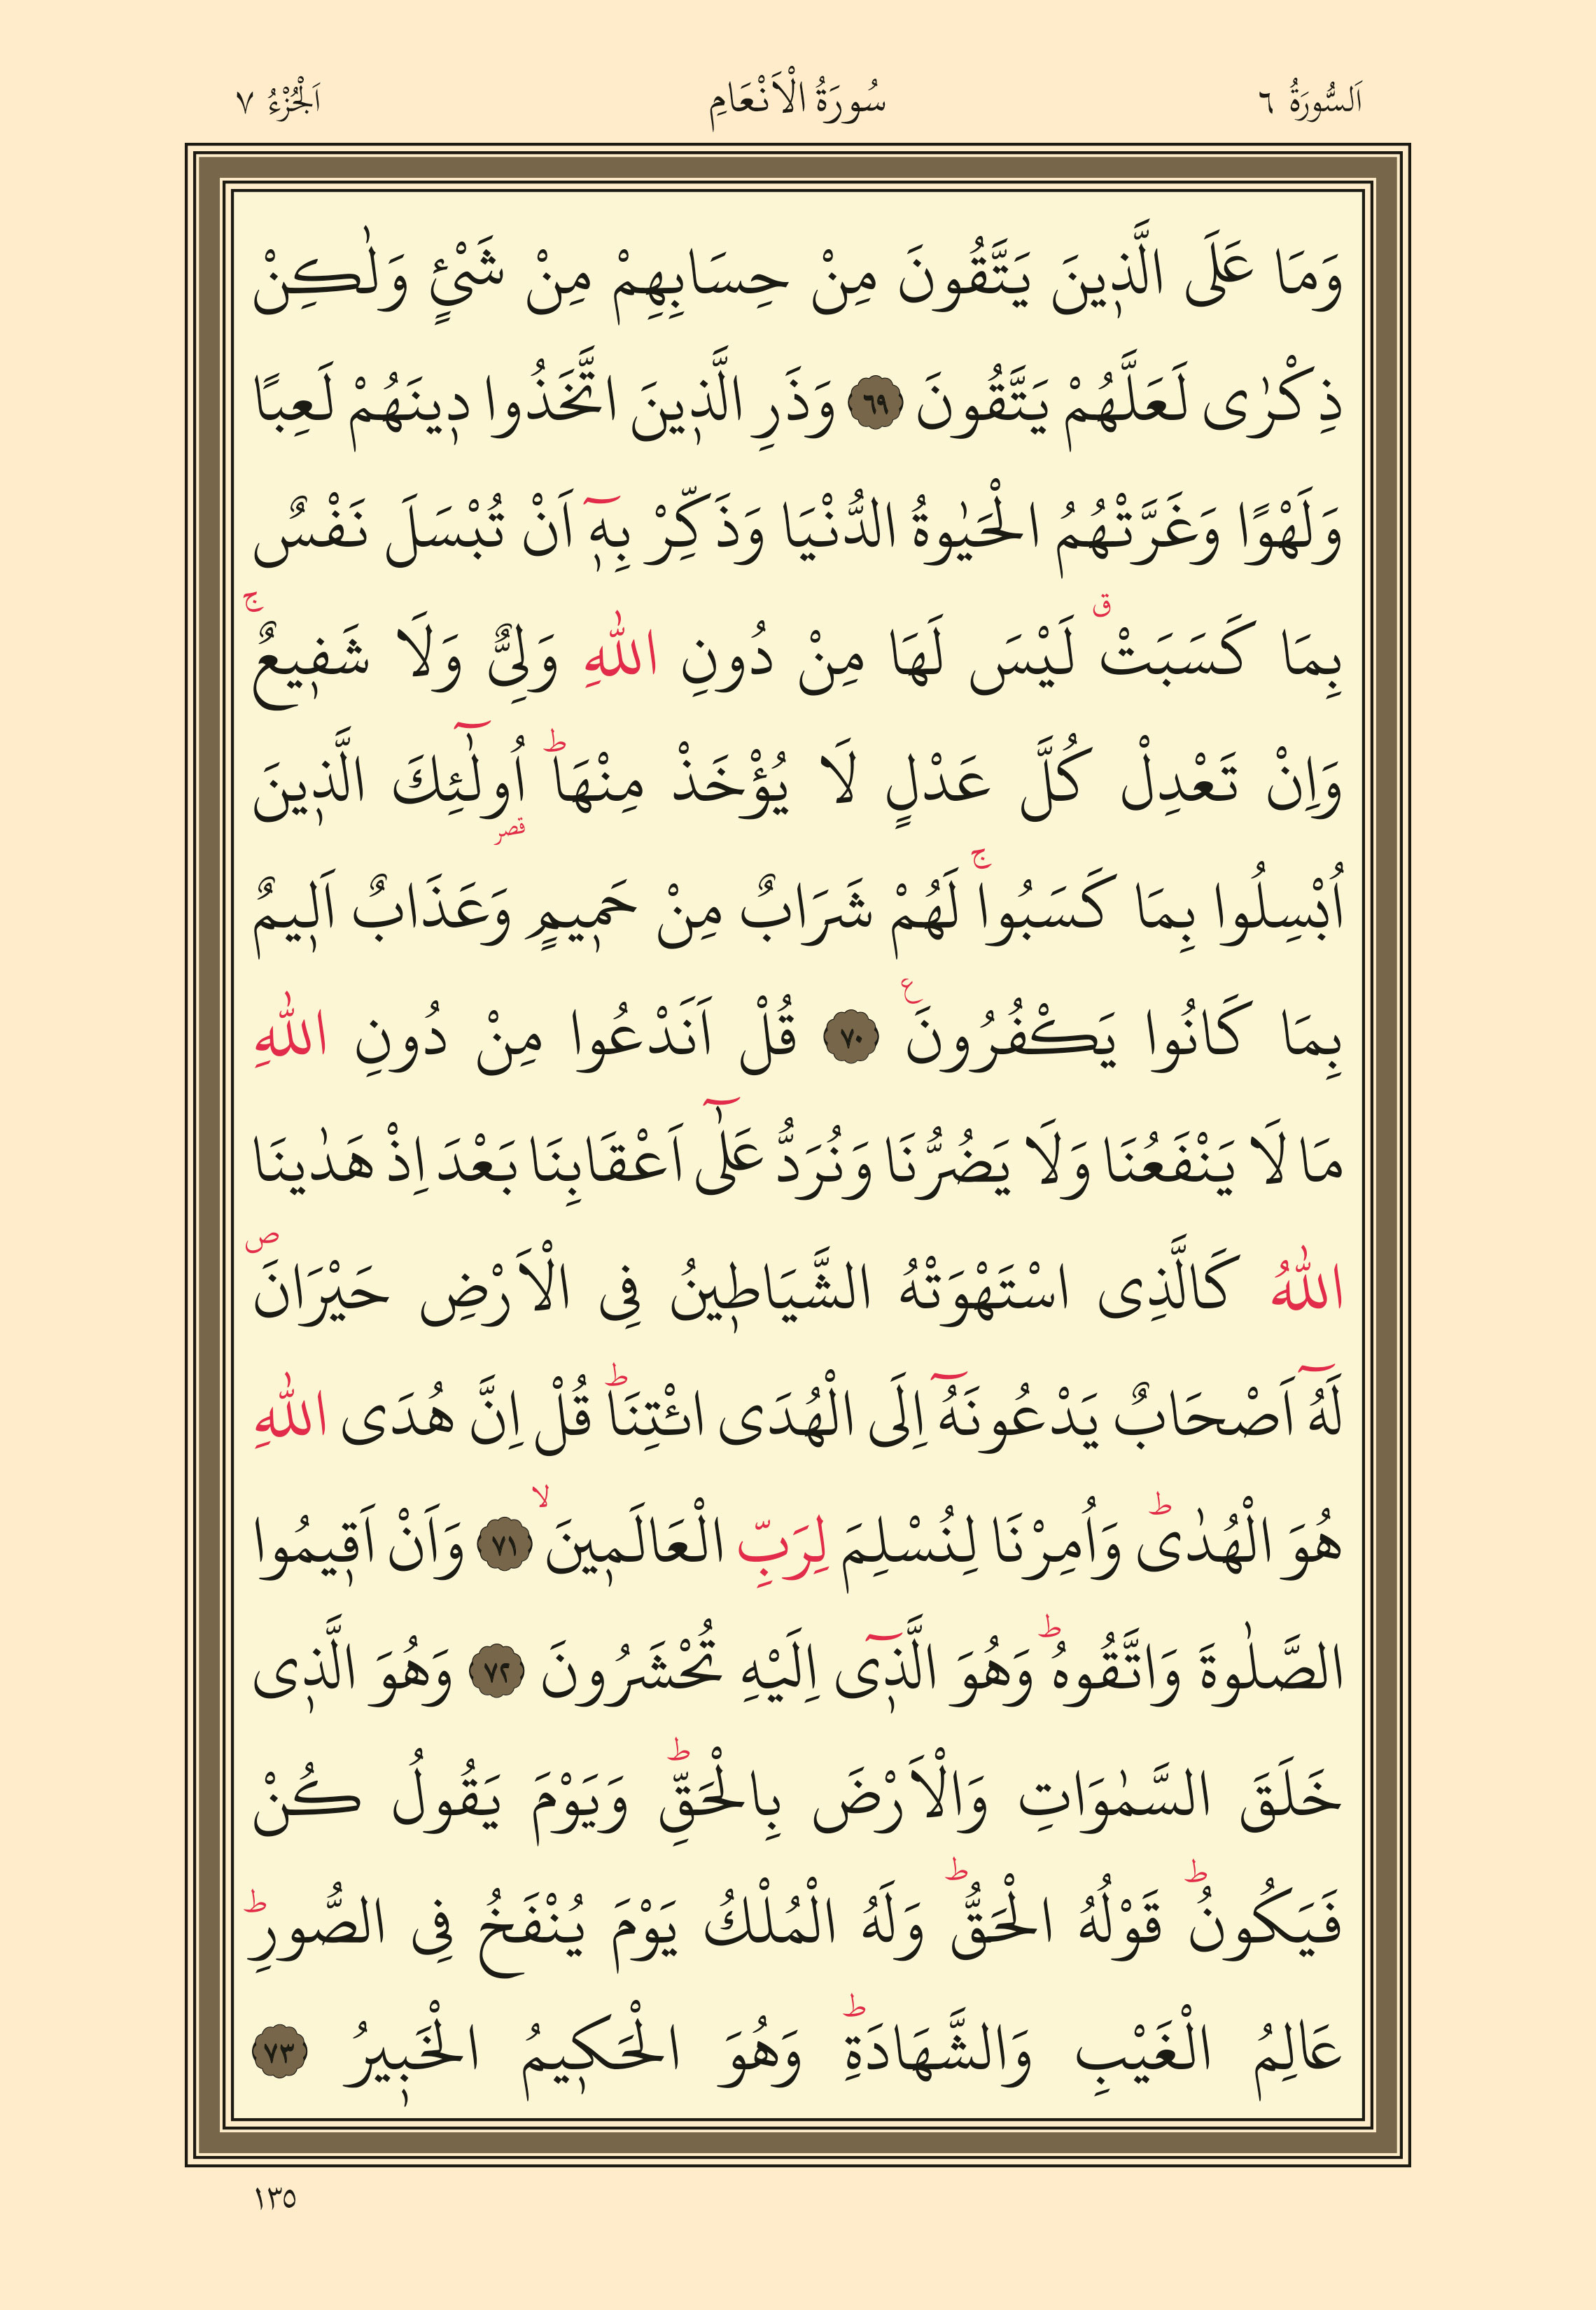 اَلسُّورَةُ ٦ سُورَةُ الْاَنْعَامِ اَلْجُزْءُ ٧
وَمَا عَلَى الَّذ۪ينَ يَتَّقُونَ مِنْ حِسَابِهِمْ مِنْ شَيْءٍ وَلٰكِنْ
ذِكْرٰى لَعَلَّهُمْ يَتَّقُونَ ٦٩ وَذَرِ الَّذ۪ينَ اتَّخَذُوا د۪ينَهُمْ لَعِبًا
وَلَهْوًا وَغَرَّتْهُمُ الْحَيٰوةُ الدُّنْيَا وَذَكِّرْ بِه۪ٓ اَنْ تُبْسَلَ نَفْسٌ
بِمَا كَسَبَتْ ق لَيْسَ لَهَا مِنْ دُونِ اللّٰهِ وَلِيٌّ وَلَا شَف۪يعٌ ج
وَاِنْ تَعْدِلْ كُلَّ عَدْلٍ لَا يُؤْخَذْ مِنْهَا ط اُولٰٓئِكَ قصر الَّذ۪ينَ
اُبْسِلُوا بِمَا كَسَبُوا ج لَهُمْ شَرَابٌ مِنْ حَم۪يمٍ وَعَذَابٌ اَل۪يمٌ
بِمَا كَانُوا يَكْفُرُونَ ع ٧٠ قُلْ اَنَدْعُوا مِنْ دُونِ اللّٰهِ
مَا لَا يَنْفَعُنَا وَلَا يَضُرُّنَا وَنُرَدُّ عَلٰٓى اَعْقَابِنَا بَعْدَ اِذْ هَدٰينَا
اللّٰهُ كَالَّذِى اسْتَهْوَتْهُ الشَّيَاط۪ينُ فِى الْاَرْضِ حَيْرَانَ ص
لَهُٓ اَصْحَابٌ يَدْعُونَهُٓ اِلَى الْهُدَى ائْتِنَا ط قُلْ اِنَّ هُدَى اللّٰهِ
هُوَ الْهُدٰى ط وَاُمِرْنَا لِنُسْلِمَ لِرَبِّ الْعَالَم۪ينَ لا ٧١ وَاَنْ اَق۪يمُوا
الصَّلٰوةَ وَاتَّقُوهُ ط وَهُوَ الَّذ۪ٓى اِلَيْهِ تُحْشَرُونَ ٧٢ وَهُوَ الَّذ۪ى
خَلَقَ السَّمٰوَاتِ وَالْاَرْضَ بِالْحَقِّ ط وَيَوْمَ يَقُولُ كُنْ
فَيَكُونُ ط قَوْلُهُ الْحَقُّ ط وَلَهُ الْمُلْكُ يَوْمَ يُنْفَخُ فِى الصُّورِ ط
عَالِمُ الْغَيْبِ وَالشَّهَادَةِ ط وَهُوَ الْحَك۪يمُ الْخَب۪يرُ ٧٣
١٣٥